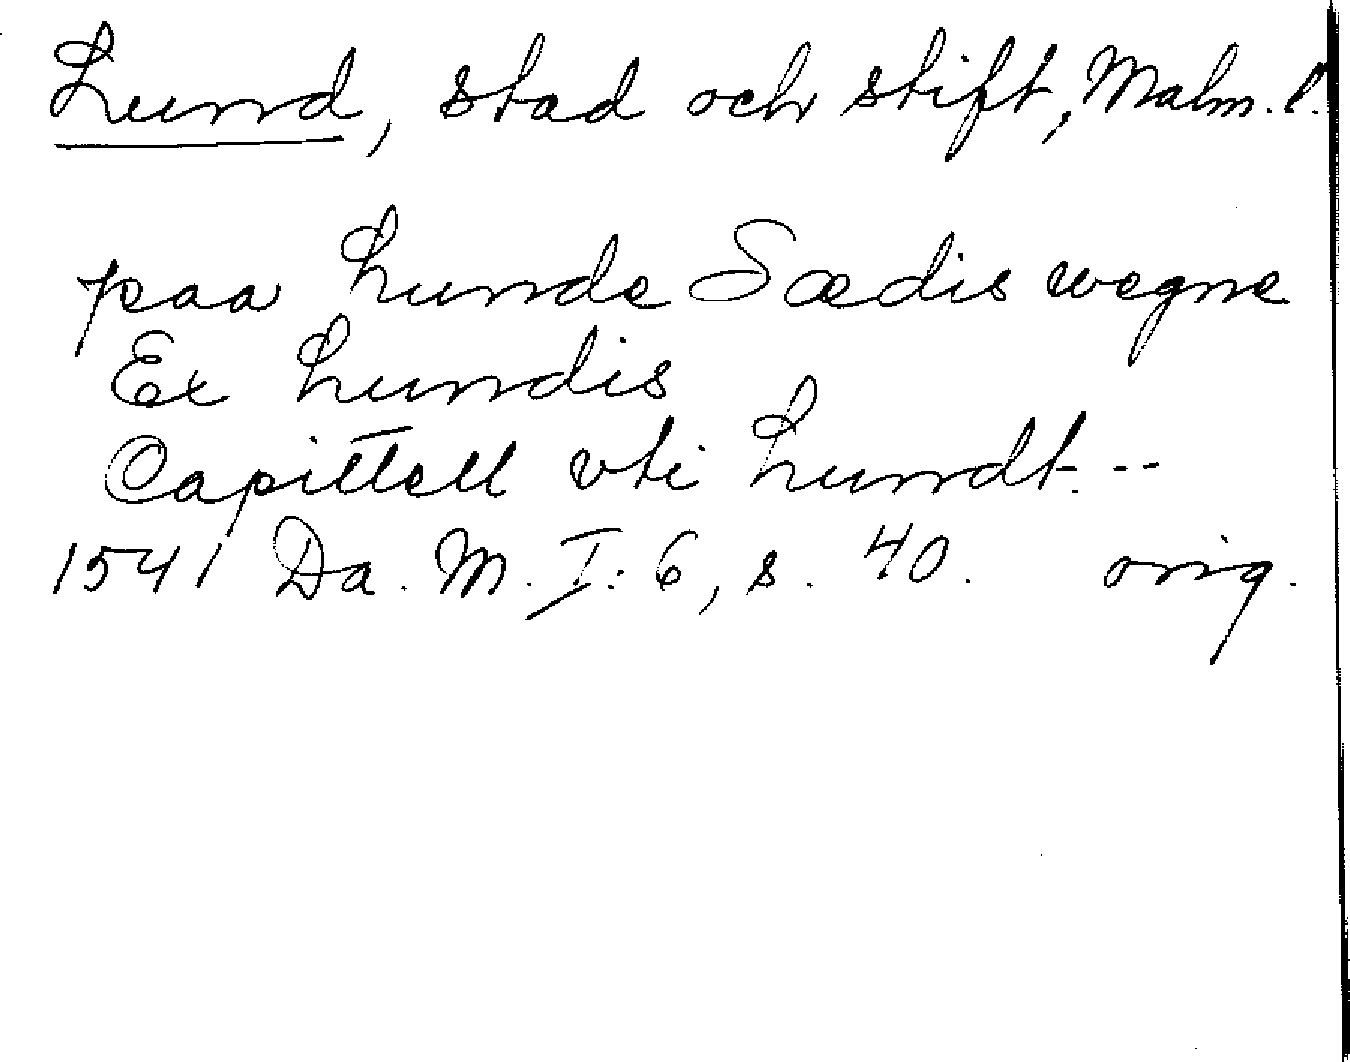 Lund, stad och stift, Malm. l.
paa Lunde Sædis wegne
Ex Lundis
Capittell vti Lundt. --
1541 Da. M. I: 6, s. 40. orig.